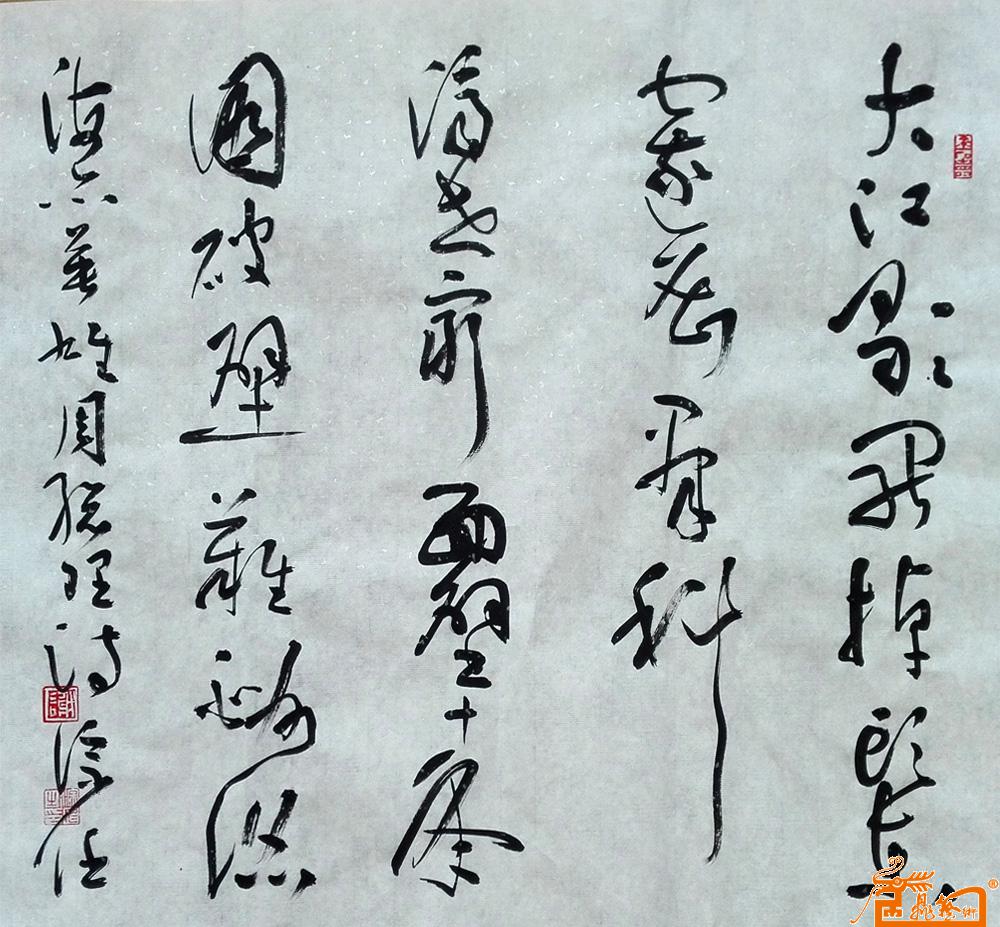 大江歌罷掉頭東
邃密群科
濟世窮面壁十年
圖破壁難酬蹈
海亦英雄周總理詩